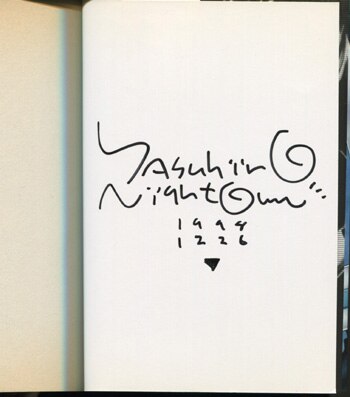 YASuhiirO
NightOwn
1998
1226